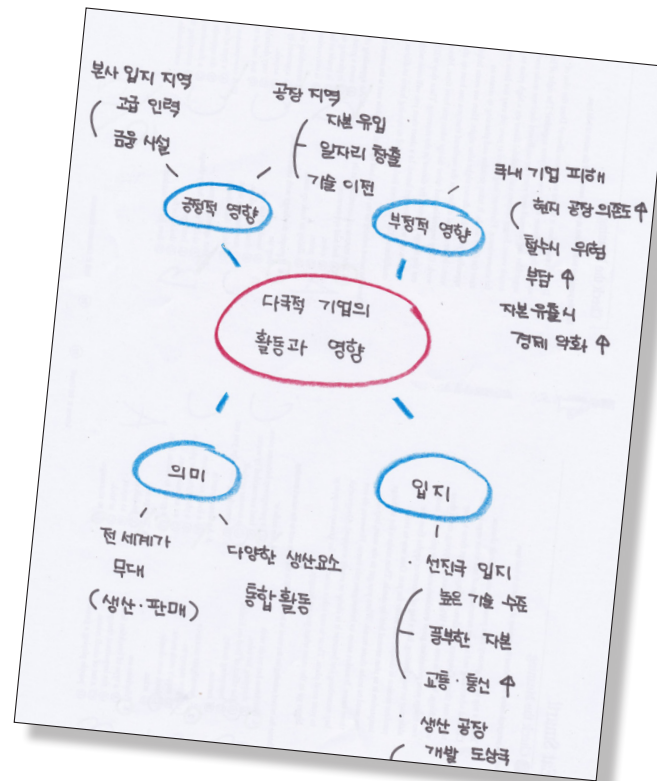 본사 입지 지역
고급 인력
금융 시설
긍정적 영향
공장 지역
자본 유입
일자리 창출
기술 이전
부정적 영향
국내 기업 피해
현지 공장 의존도 ↑
철수시 위험
부담 ↑
자본 유출시
경제 악화 ↑
다국적 기업의
활동과 영향
의미
전 세계가
무대
(생산·판매)
다양한 생산요소
통합 활동
입지
· 선진국 입지
높은 기술 수준
풍부한 자본
교통·통신 ↑
· 생산 공장
개발 도상국